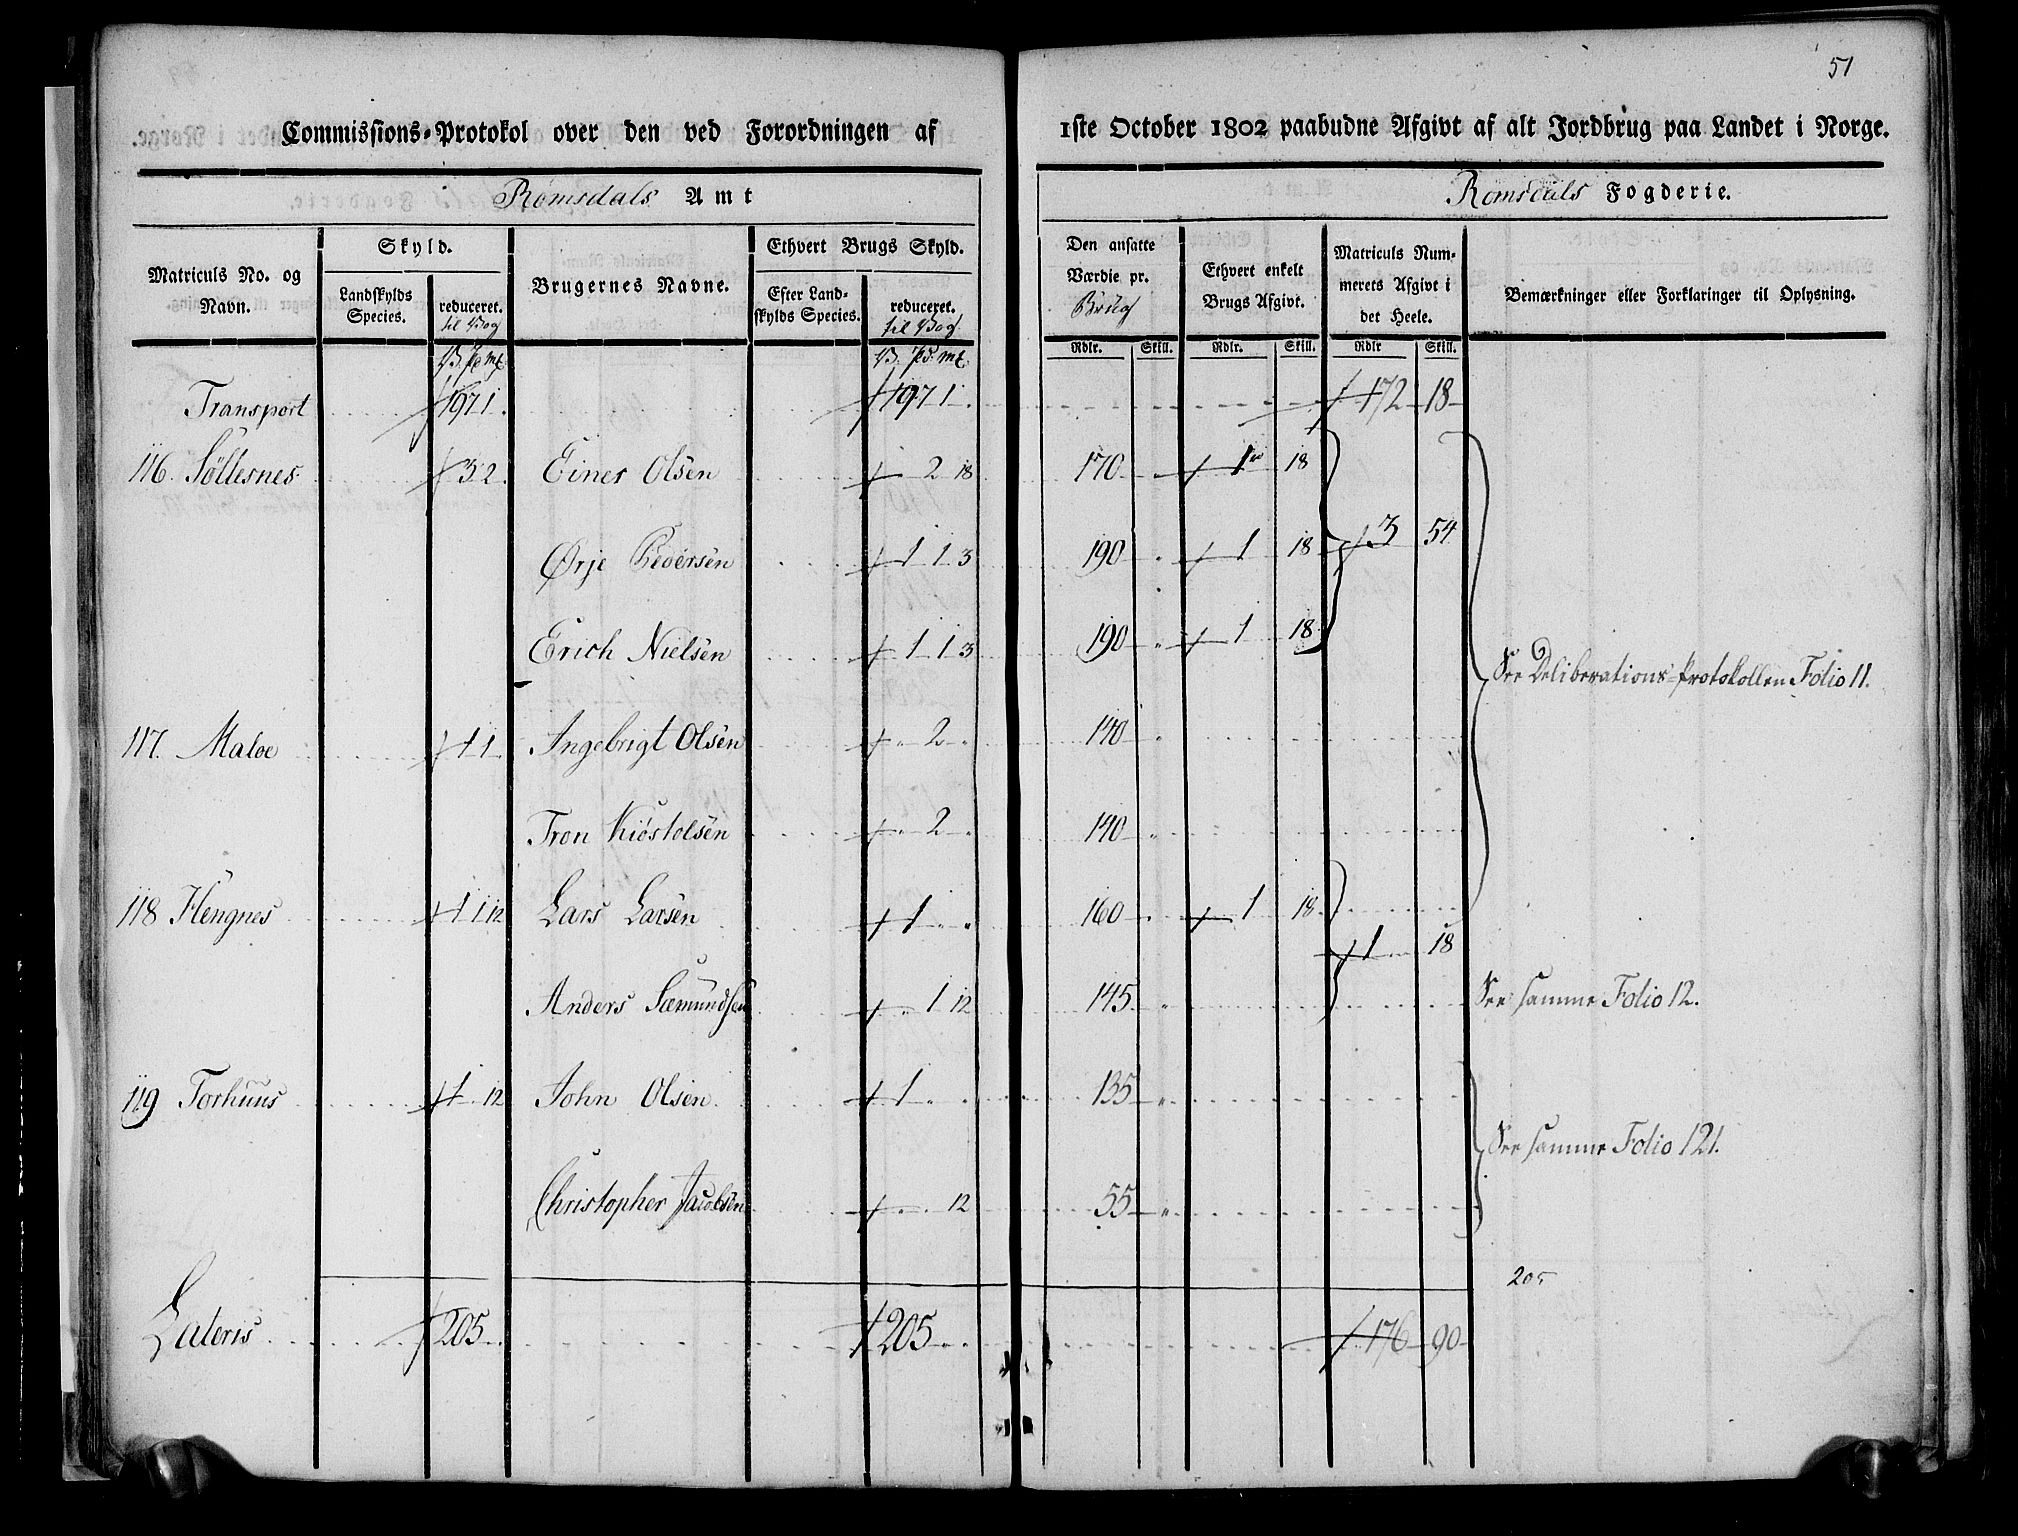 51
Commissions-Protokol over den ved Forordningen af 1ste October 1802 paabudne Afgivt af alt Jordbrug paa Landet i Norge.
Romsdals Amt
Romsdals Fogderie.
Matriculs No. og Navn. Skyld. Landskylds Species. reduceret. til Vog Brugernes Navne. Ethvert Brugs Skyld. Efter Landskylds Species. reduceret. til Vog. Den ansatte Værdie pr. Brug Ethvert enkelt Brugs Afgivt. Matriculs Nummerets Afgivt i det Heele. Bemærkninger eller Forklaringer til Oplysning.
V. pd. mk. V. pd. mk. Rdlr. Skill. Rdlr. Skill. Rdlr Skill.
Transport 197 1 197 1 172 18
116. Søllesnes 3 2 Einer Olsen 2 18 170 1 18
Ørje Pedersen 1 1 3 190 1 18 3 54
Erich Nielsen 1 1 3 190 1 18
See Deliberations-Protokollen Folio 11.
117. Maloe 1 1 Ingebrigt Olsen 2 140
Tron Kiøstolsen 2 140
118 Hengnes 1 1 12 Lars Larsen 1 160 1 18
1 18
Anders Sæmundsen 1 12 145 See samme Folio 12.
119 Torhuus 1 12 John Olsen 1 135
See samme Folio 121.
Christopher Jacobsen 12 55
205
Lateris 205 205 176 90